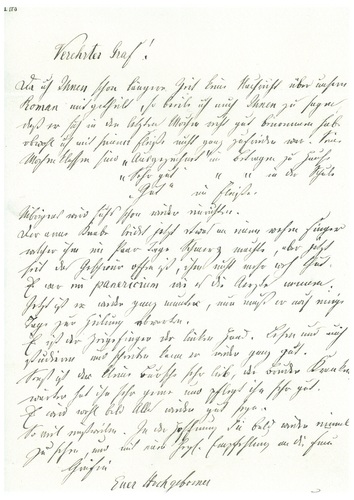 Verehrter Graf!
Da ich Ihnen schon längere Zeit keine Nachricht über unseren
Roman mitgetheilt, so beeile ich mich Ihnen zu sagen,
daß er sich in den letzten Wochen recht gut benommen hat,
obwohl ich mit seinem Fleiße nicht ganz zufrieden war. Seine
"Ausgezeichnet" im Betragen zu Hause
"Sehr gut" " " in der Schule
"Gut" im Fleiße.
Übrigens wird sich's schon wieder
Der arme Knabe leidet jetzt etwas an einem wehen Finger
welcher ihm ein paar Tage Schmerz machte, aber jetzt
seit das Geschwür offen ist, ihm nicht mehr weh thut.
Es war ein panaricium wie es die Ärzte nennen.
Jetzt ist er wieder ganz munter, nur muß er noch einige
Tage zur Heilung abwarten.
Es ist der Zeigefinger der linken Hand. Lesen und
studieren und schreiben kann er wieder ganz gut.
Sonst ist der kleine Bursche sehr lieb, der Kranken
wärter hat ihn sehr gerne und pflegt ihn sehr gut.
Es wird wohl bald Alles wieder gut sein.
In der Hoffnung Sie bald wieder einmal
zu sehen, und mit Empfehlung an die Frau
Gräfin
Euer Hochgeboren